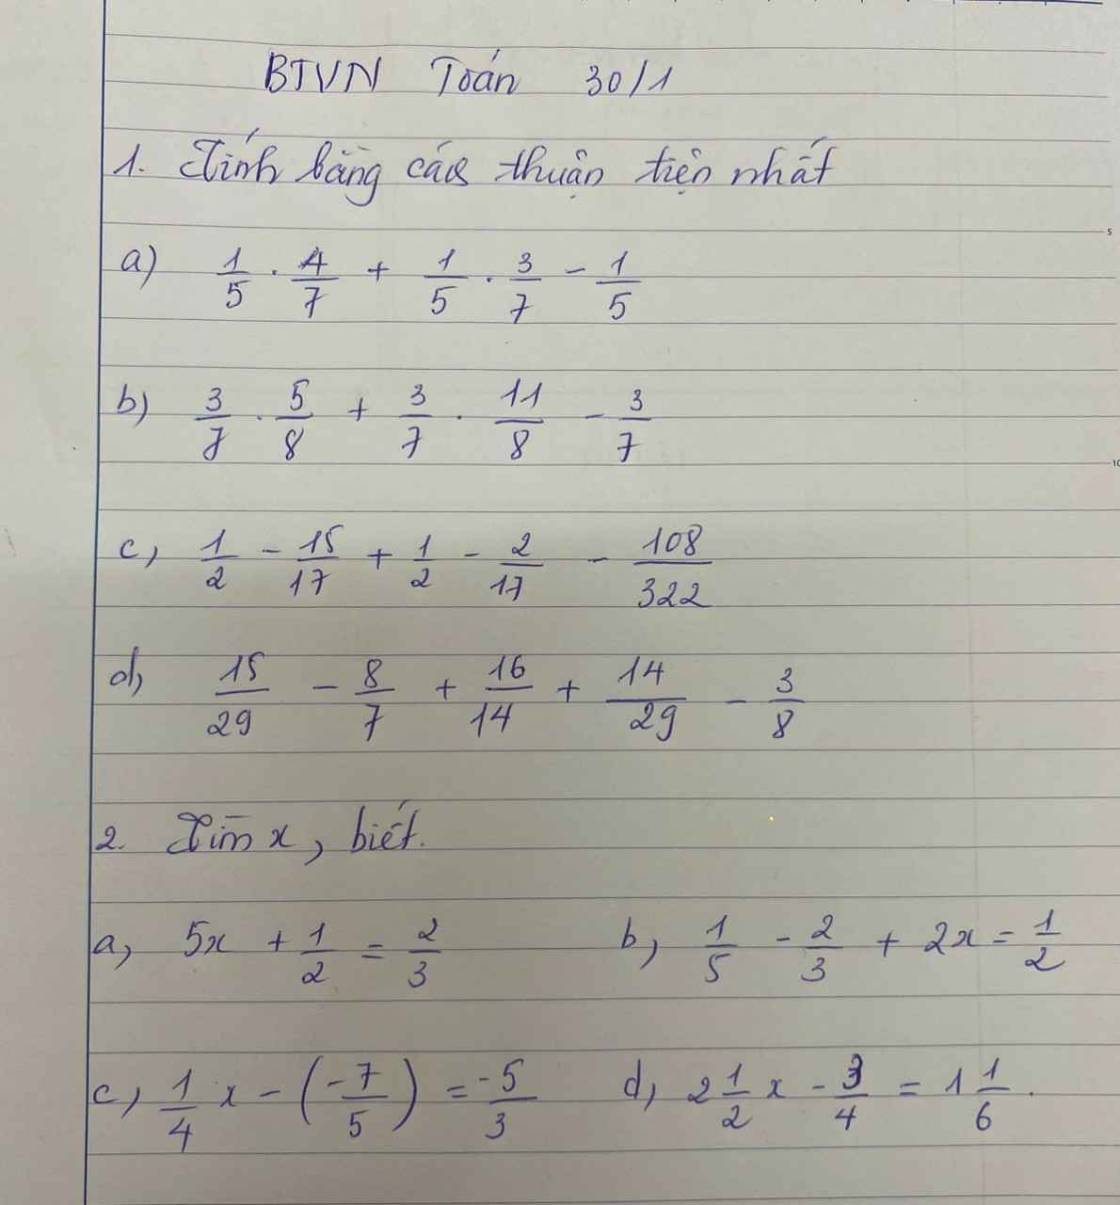 BTVN Toán 30/1
1. Tính bằng các thuận tiện nhất
a) 1/5 . 4/7 + 1/5 . 3/7 - 1/5
b) 3/7 . 5/8 + 3/7 . 11/8 - 3/7
c, 1/2 - 15/17 + 1/2 - 2/17 - 108/322
d, 15/29 - 8/7 + 16/14 + 14/29 - 3/8
2. Tìm x, biết.
a, 5x + 1/2 = 2/3 b, 1/5 - 2/3 + 2x = 1/2
c, 1/4 x - (-7/5) = -5/3 d, 2 1/2 x - 3/4 = 1 1/6.
5
10